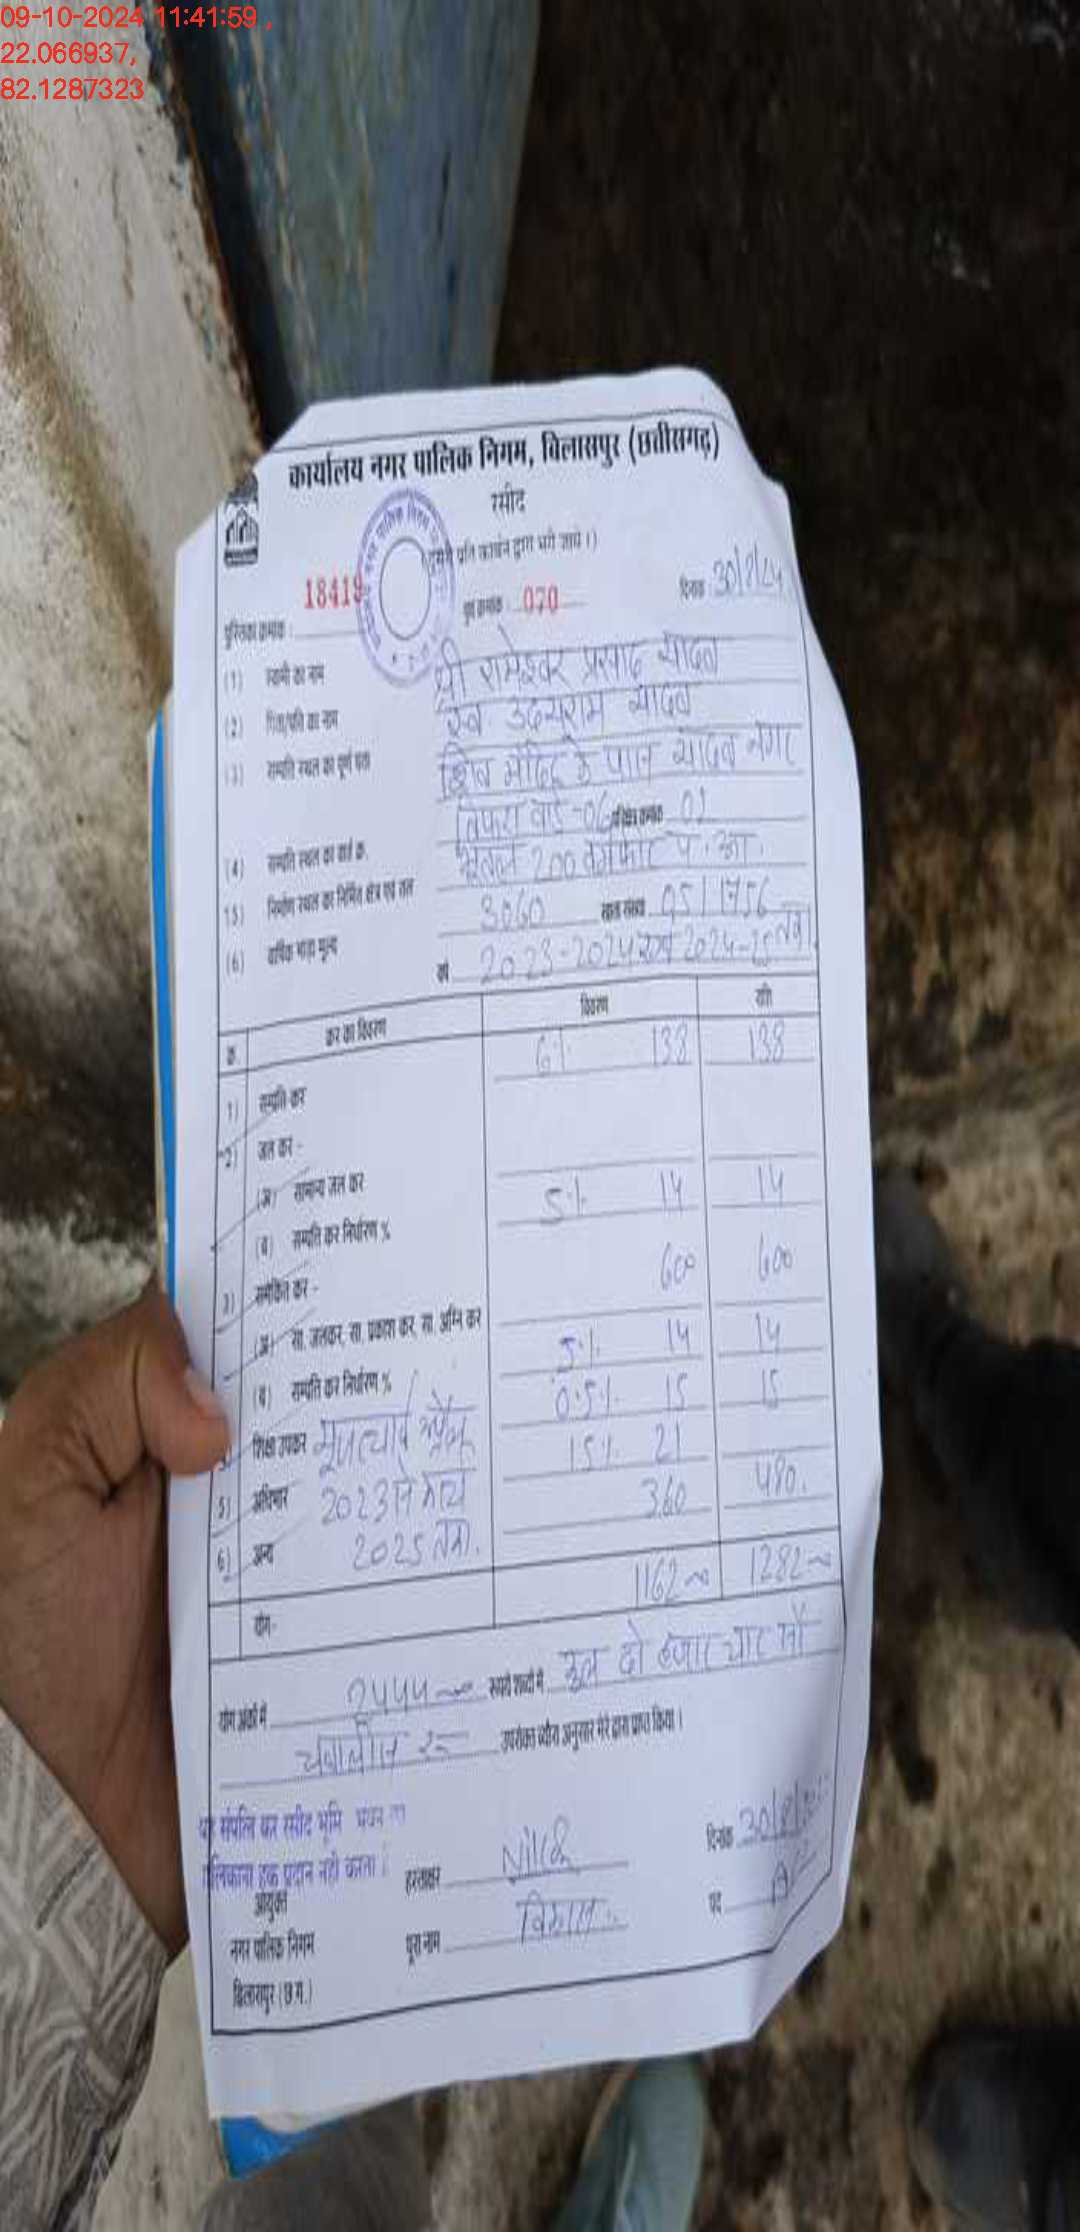 09-10-2024 11:41:59 ,
22.066937,
82.1287323
कार्यालय नगर पालिक निगम, बिलासपुर (छत्तीसगढ़)
रसीद
प्रति कार्बन द्वारा भरी जावे।)
पुस्तिका क्रमांक : 18419 पृष्ठ क्रमांक : 070 दिनांक 30/8/24
(1) स्वामी का नाम श्री रामेश्वर प्रसाद यादव
(2) पिता/पति का नाम स्व. उदयराम यादव
(3) सम्पत्ति स्थल का पूर्ण पता शिव मंदिर के पास यादव नगर
(4) सम्पत्ति स्थल का वार्ड क्र. तिफरा वार्ड-06 परिक्षेत्र क्रमांक 02
(5) निर्माण स्थल का निर्मित क्षेत्र एवं तल भूतल 200 वर्गफीट प. आ.
(6) वार्षिक भाड़ा मूल्य 3060 खाता संख्या 0511756
वर्ष 2023-2024 एवं 2024-25 तक।
क्र. कर का विवरण विवरण राशि
1) सम्पत्ति कर 6% 138 138
2) जल कर -
(अ) सामान्य जल कर
(ब) सम्पत्ति कर निर्धारण % 5% 14 14
3) समेकित कर - 600 600
(अ) सा. जलकर, सा. प्रकाश कर, सा. अग्नि कर
(ब) सम्पत्ति कर निर्धारण % 5% 14 14
शिक्षा उपकर 0.5% 15 15
5) अधिभार 2023 से मार्च 15% 21
6) अन्य 2025 तक. 360 480.
योग- 1162 1282
योग अंकों में 2444 रूपये शब्दों में कुल दो हजार चार सौ
चवालीस रू उपरोक्त ब्यौरा अनुसार मेरे द्वारा प्राप्त किया।
यह संपत्ति कर रसीद भूमि भवन का
मालिकाना हक प्रदान नही करता।
दिनांक 30/8/
आयुक्त हस्ताक्षर
नगर पालिक निगम पूरा नाम विकास पद
बिलासपुर (छ.ग.)